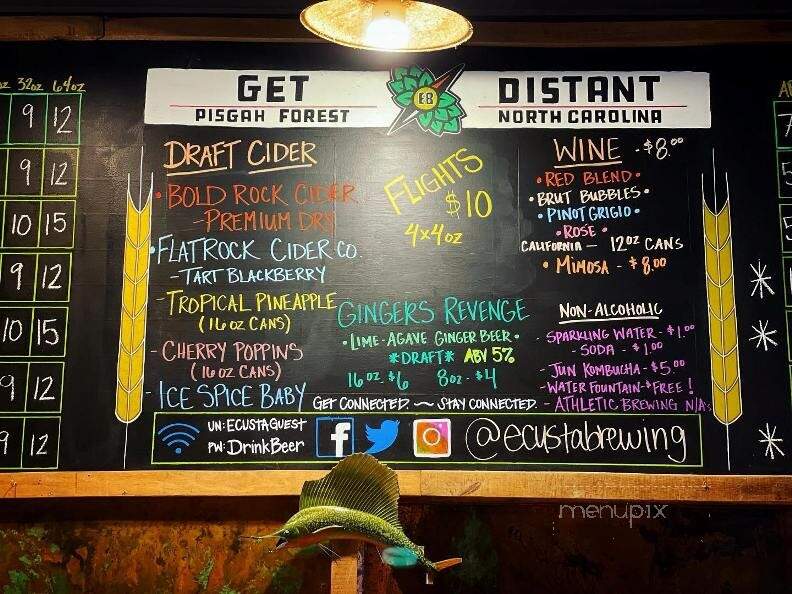 GET DISTANT
PISGAH FOREST NORTH CAROLINA
EB
32oz 64oz
9 12
9 12
10 15
9 12
10 15
9 12
9 12
DRAFT CIDER
• BOLD ROCK CIDER
- PREMIUM DRY
• FLATROCK CIDER CO.
- TART BLACKBERRY
- TROPICAL PINEAPPLE
(16 oz CANS)
- CHERRY POPPINS
(16 oz CANS)
- ICE SPICE BABY
FLIGHTS
$10
4x4oz
GINGERS REVENGE
• LIME-AGAVE GINGER BEER •
*DRAFT* ABV 5%
16oz $6 8oz - $4
WINE - $8.00
• RED BLEND •
• BRUT BUBBLES •
• PINOT GRIGIO •
• ROSE •
CALIFORNIA — 12oz CANS
• MIMOSA - $8.00
NON-ALCOHOLIC
- SPARKLING WATER - $1.00
SODA - $1.00
- JUN KOMBUCHA - $5.00
- WATER FOUNTAIN - $FREE!
- ATHLETIC BREWING N/A's
GET CONNECTED ~ STAY CONNECTED
UN: ECUSTAGUEST
PW: DrinkBeer
@ecustabrewing
menupix